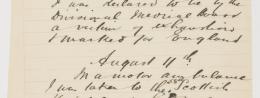 I was declared to be by the
Divisional Medical Board
a victim of
& marked for England
August 11th
In a motor ambulance
I was taken to the Scottish